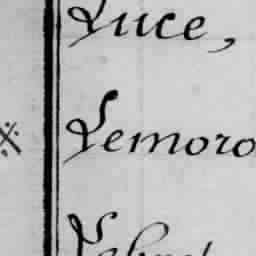 Luce,
Lemoro